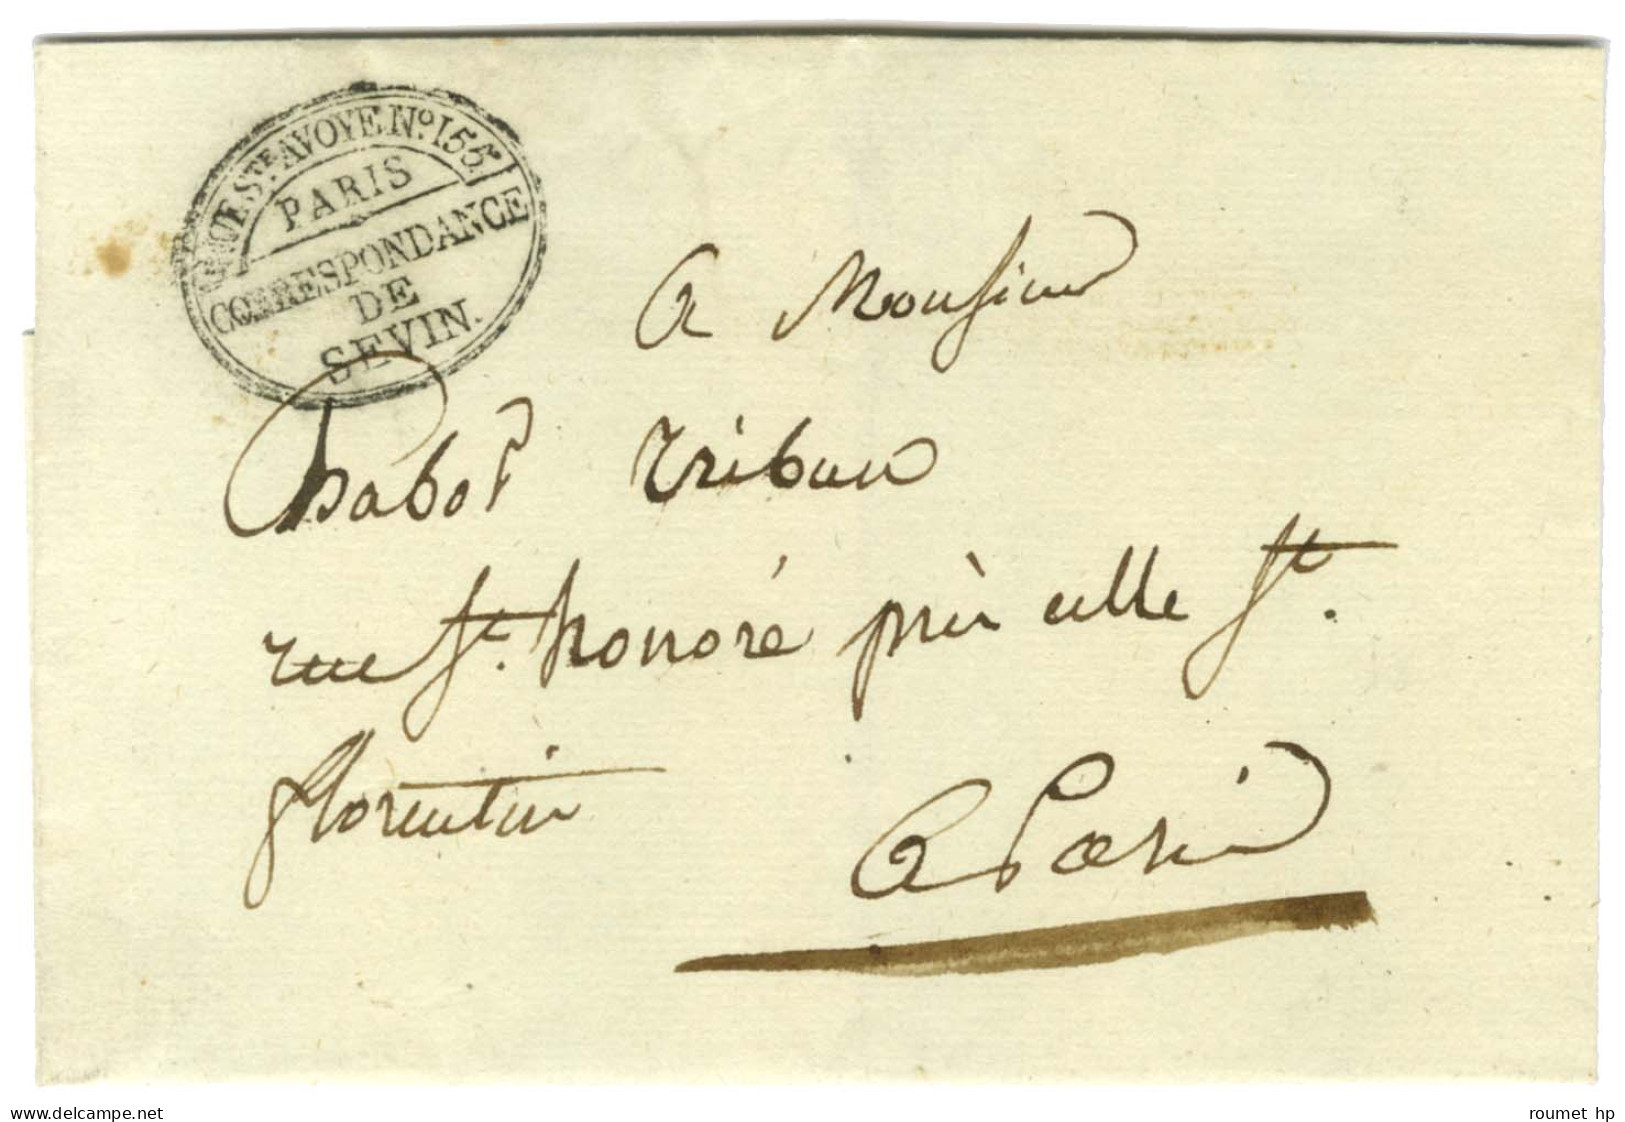 RUE STE AVOYE No. 155
PARIS
CORRESPONDANCE
DE
SEVIN.
A Monsieur
Chabot Tribun
rue St. honoré près celle St.
florentin
A Paris
delcampe.net
roumet hp